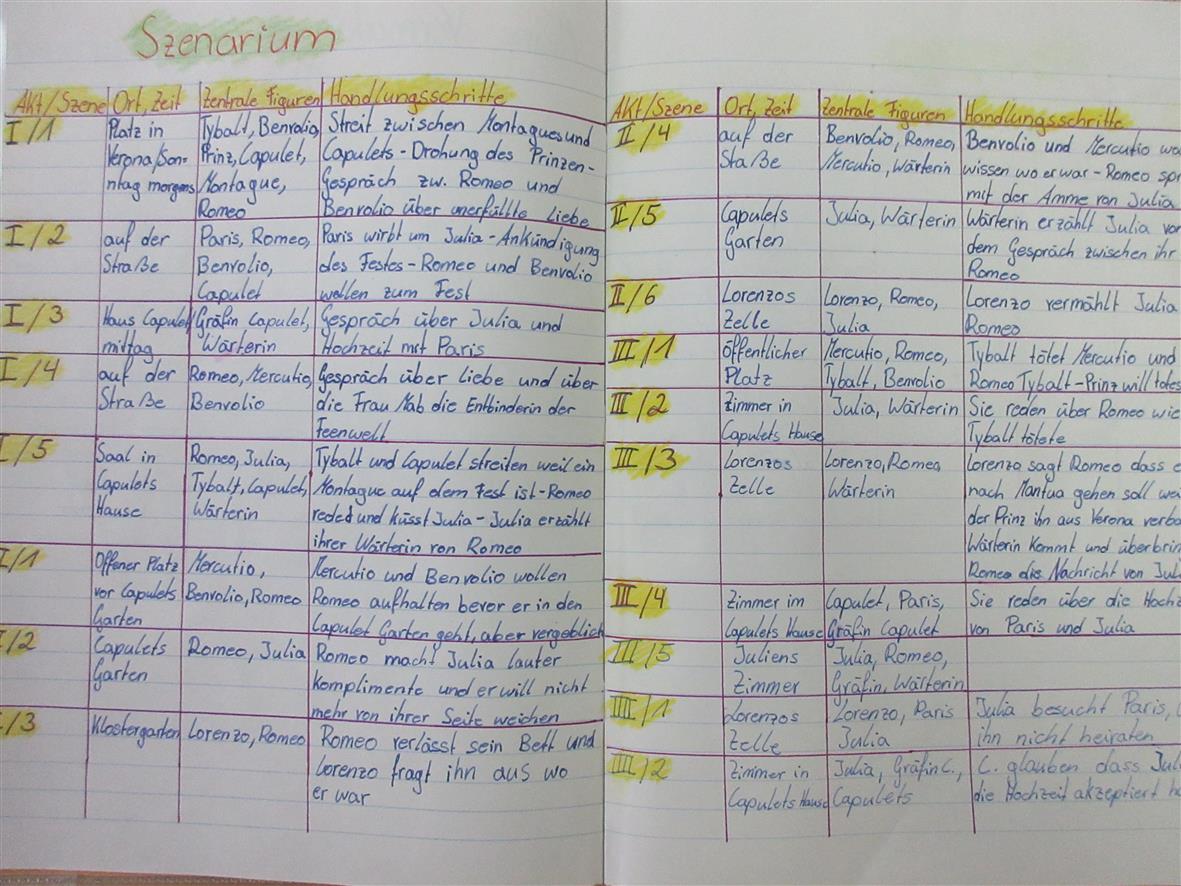 Szenarium
Akt/Szene Ort, Zeit Zentrale Figuren Handlungsschritte
I/1 Platz in Tybalt, Benvolio, Streit zwischen Montagues und
Verona/Son- Prinz, Capulet, Capulets - Drohung des Prinzen -
ntag morgens Montague, Gespräch zw. Romeo und
Romeo Benvolio über unerfüllte Liebe
I/2 auf der Paris, Romeo, Paris wirbt um Julia - Ankündigung
Straße Benvolio, des Festes - Romeo und Benvolio
Capulet wollen zum Fest
I/3 Haus Capulet Gräfin Capulet, Gespräch über Julia und
mittag Wärterin Hochzeit mit Paris
I/4 auf der Romeo, Mercutio, Gespräch über Liebe und über
Straße Benvolio die Frau Mab die Entbinderin der
Feenwelt
I/5 Saal in Romeo, Julia, Tybalt und Capulet streiten weil ein
Capulets Tybalt, Capulet, Montague auf dem Fest ist - Romeo
Hause Wärterin reded und küsst Julia - Julia erzählt
ihrer Wärterin von Romeo
I/1 Offener Platz Mercutio, Mercutio und Benvolio wollen
vor Capulets Benvolio, Romeo Romeo aufhalten bevor er in den
Garten Capulet Garten geht, aber vergeblich
/2 Capulets Romeo, Julia Romeo macht Julia lauter
Garten Komplimente und er will nicht
mehr von ihrer Seite weichen
/3 Klostergarten Lorenzo, Romeo Romeo verlässt sein Bett und
Lorenzo fragt ihn aus wo
er war
Akt/Szene Ort, Zeit Zentrale Figuren Handlungsschritte
II/4 auf der Benvolio, Romeo, Benvolio und Mercutio wo
Staße Mercutio, Wärterin wissen wo er war - Romeo spr
mit der Amme von Julia
II/5 Capulets Julia, Wärterin Wärterin erzählt Julia vo
Garten dem Gespräch zwischen ihr
Romeo
II/6 Lorenzos Lorenzo, Romeo, Lorenzo vermählt Julia
Zelle Julia Romeo
III/1 öffentlicher Mercutio, Romeo, Tybalt tötet Mercutio und
Platz Tybalt, Benvolio Romeo Tybalt - Prinz will totes
III/2 Zimmer in Julia, Wärterin Sie reden über Romeo wie
Capulets Hause Tybalt tötete
III/3 Lorenzos Lorenzo, Romeo Lorenzo sagt Romeo dass e
Zelle Wärterin nach Mantua gehen soll wei
der Prinz ihn aus Verona verba
Wärterin kommt und überbrin
Romeo die Nachricht von Jul
III/4 Zimmer im Capulet, Paris, Sie reden über die Hochz
Capulets Hause Gräfin Capulet von Paris und Julia
III/5 Juliens Julia, Romeo,
Zimmer Gräfin, Wärterin
IIII/1 Lorenzos Lorenzo, Paris Julia besucht Paris,
Zelle Julia ihn nicht heiraten
IIII/2 Zimmer in Julia, Gräfin C., C. glauben dass Jul
Capulets Hause Capulets die Hochzeit akzeptiert h